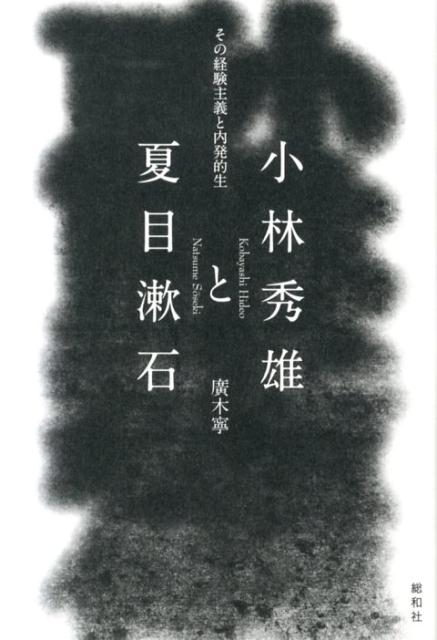 小林秀雄
Kobayashi Hideo
と
夏目漱石
Natsume Sōseki
その経験主義と内発的生
廣木寧
総和社